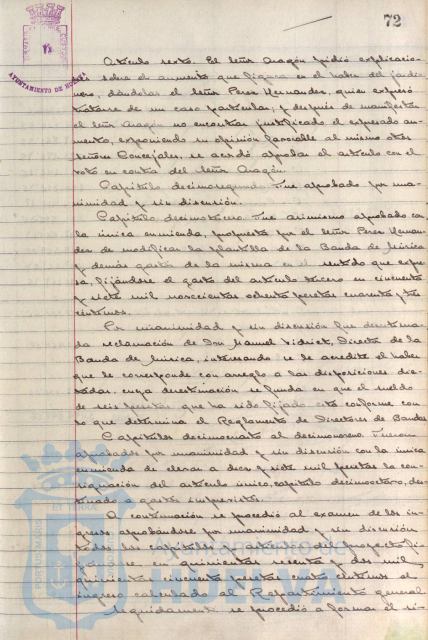 72
AYUNTAMIENTO DE HUELVA
Artículo sexto. El señor Aragón pidió explicacio-
nes sobre el aumento que figura en el haber del jardi-
nero, dándolas el señor Perez Hernandez, quien expresó
tratarse de un caso particular, y después de manifestar
el señor Aragón no encontrar justificado el expresado au-
mento, exponiendo su opinión favorable al mismo otros
señores Concejales, se acordó aprobar el artículo con el
voto en contra del señor Aragón.
Capítulo decimosegundo. Fue aprobado por una-
nimidad y sin discusión.
Capítulo decimotercero. Fue asimismo aprobado con
la única enmienda, propuesta por el señor Perez Hernan-
dez de modificar la plantilla de la Banda de Música
y demás gastos de la misma en el sentido que expre-
sa, fijándose el gasto del artículo tercero en cincuenta
y siete mil novecientas ochenta pesetas cuarenta y tres
céntimos.
Por unanimidad y sin discusión fue desestima-
da reclamación de Don Manuel Director de la
Banda de Música, interesando se le acredite el haber
que le corresponde con arreglo a las disposiciones dic-
tadas, cuya desestimación se funda en que el sueldo
de seis pesetas que ha sido fijado está conforme con
lo que determina el Reglamento de Directores de Bandas
Capítulos decimocuarto al decimonoveno. Fueron
aprobados por unanimidad y sin discusión con la única
enmienda de elevar a diez y siete mil pesetas la con-
signación del artículo único, capítulo decimoctavo, des-
tinado a gastos imprevistos.
A continuación se procedió al examen de los in-
gresos aprobándose por unanimidad y sin discusión
todos los capítulos del proyecto fi-
jándose en quinientas sesenta y dos mil
quinientas cincuenta pesetas cuatro céntimos el
ingreso calculado al Repartimiento general
Seguidamente se procedió a formar el si-
Ayuntamiento de
HUELVA